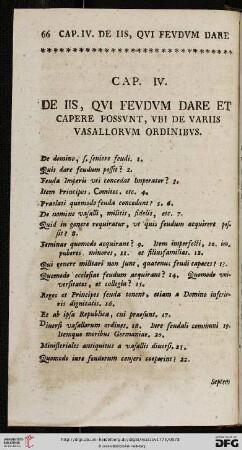 66 CAP. IV. DE IIS, QVI FEVDVM DARE
CAP. IV.
DE IIS, QVI FEVDVM DARE ET
CAPERE POSSVNT, VBI DE VARIIS
VASALLORVM ORDINIBVS.
De domino, s. seniore feudi. 1.
Quis dare feudum possit? 2.
Feuda Imperii vti concedat Imperator? 3.
Item Principes, Comites, etc. 4.
Praelati quomodo feuda concedunt? 5. 6.
De nomine vasalli, militis, fidelis, etc. 7.
Quid in genere requiratur, vt quis feudum acquirere pos-
sit? 8.
Feminae quomodo acquirant? 9. Item imperfecti, 10. im-
puberes, minores, 11. et filiusfamilias. 12.
Qui genere militari non sunt, quatenus feudi capaces? 13.
Quomodo ecclesiae feudum acquirant? 14. Quomodo vni-
versitates, et collegia? 15.
Reges et Principes feuda tenent, etiam a Domino inferio-
ris dignitatis. 16.
Et ab ipsa Republica, cui praesunt. 17.
Diuersi vasallorum ordines, 18. Iure feudali communi 19.
Itemque moribus Germaniae. 20.
Ministeriales antiquitus a vasallis diuersi. 21.
Quomodo iure feudorum censeri coeperint? 22.
Septem
DFG